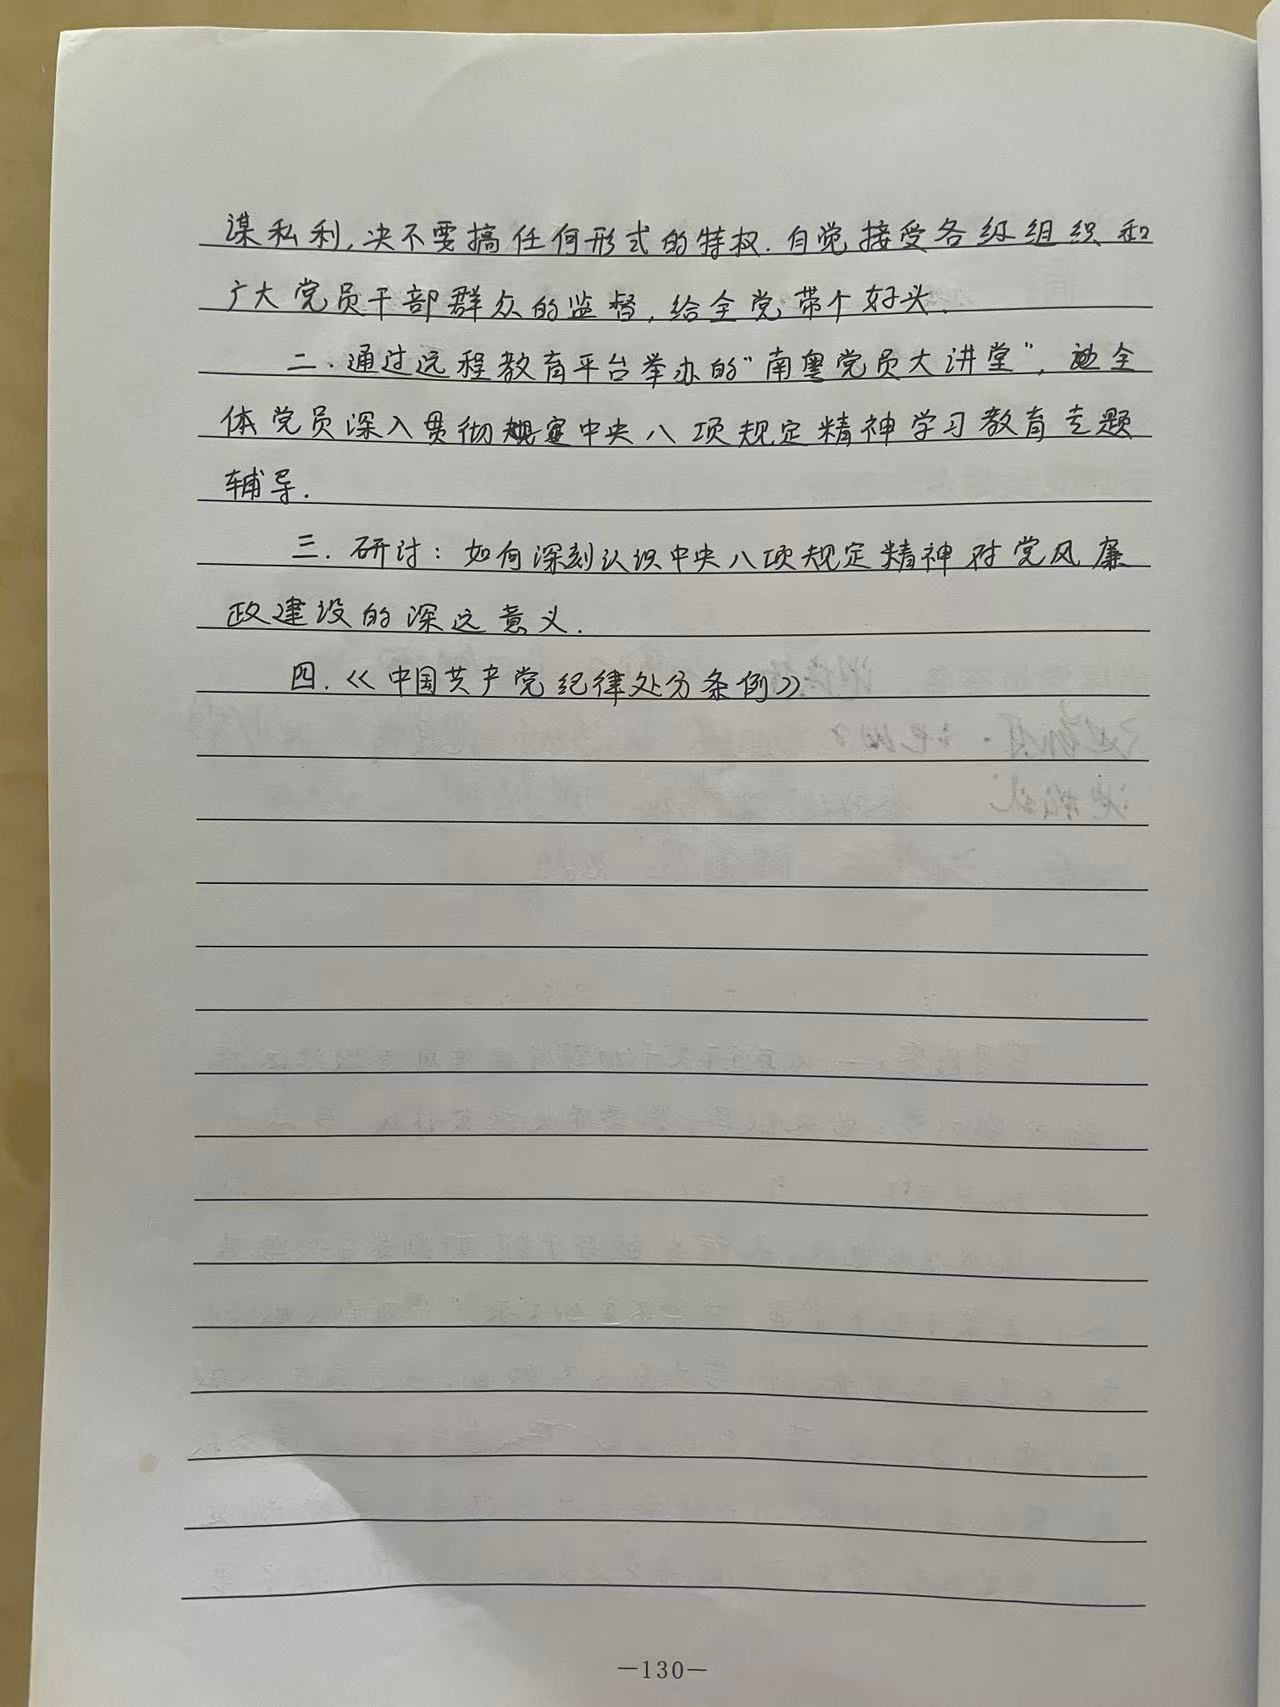 谋私利,决不要搞任何形式的特权.自觉接受各级组织和
广大党员干部群众的监督,给全党带个好头.
二.通过远程教育平台举办的“南粤党员大讲堂”,全
体党员深入贯彻中央八项规定精神学习教育专题
辅导.
三.研讨:如何深刻认识中央八项规定精神对党风廉
政建设的深远意义.
四.《中国共产党纪律处分条例》
—130—